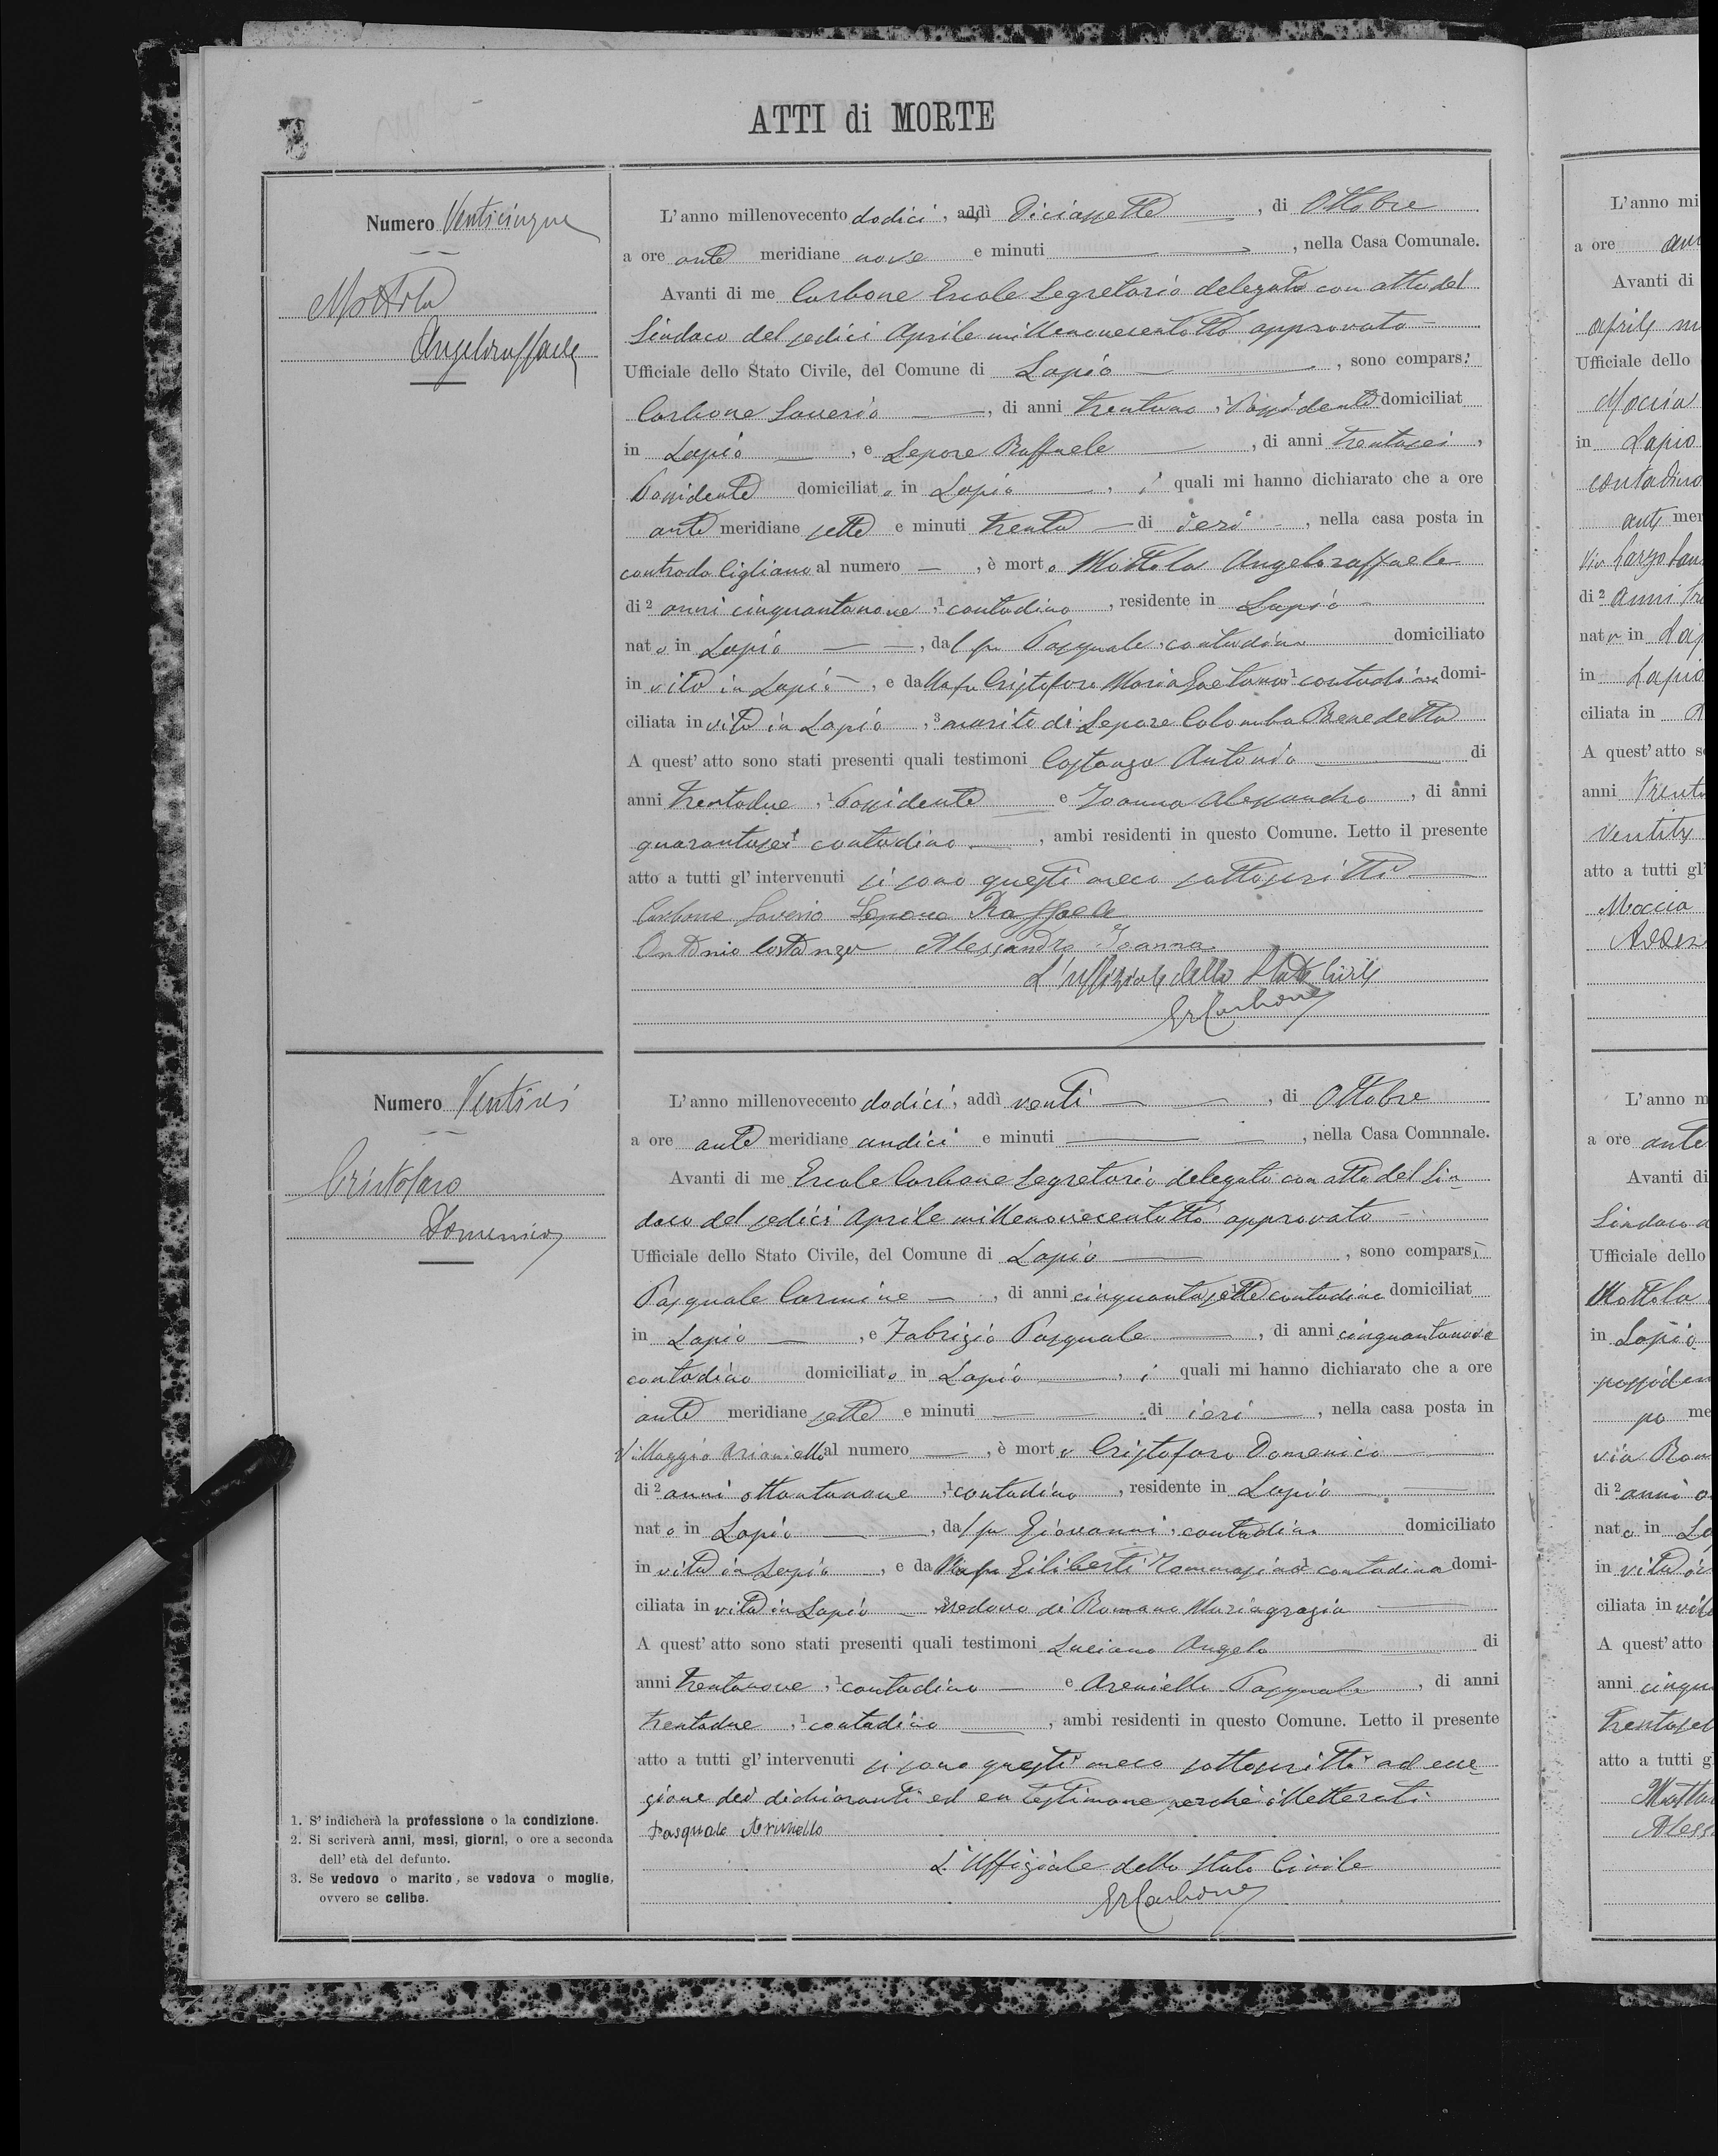 ATTI di MORTE
Numero Venticinque
Mottola
Angeloraffaele
L'anno millenovecento dodici, addì Diciassette, di Ottobre
a ore ante meridiane nove e minuti, nella Casa Comunale.
Avanti di me Carbone Ercole Segretario delegato con atto del
Sindaco del sedici Aprile millenovecentotto approvato
Ufficiale dello Stato Civile, del Comune di Lapio, sono comparsi
Carbone Saverio, di anni trentuno, 1 Possidente domiciliat
in Lapio, e Lepore Raffaele, di anni trentasei,
Possidente domiciliato in Lapio, i quali mi hanno dichiarato che a ore
ante meridiane sette e minuti trenta di ieri, nella casa posta in
contrada Cigliano al numero, è morto Mottola Angeloraffaele
di 2 anni cinquantanove, 1 contadino, residente in Lapio
nato in Lapio, dal fu Pasquale, contadino domiciliato
in vita in Lapio, e dalla fu Cristofaro Maria Gaetana 1 contadina domi-
ciliata in vita in Lapio, 3 marito di Lepore Colomba Benedetta
A quest'atto sono stati presenti quali testimoni Costanzo Antonio di
anni trentadue, 1 Possidente e Joanna Alessandro, di anni
quarantasei 1 contadino, ambi residenti in questo Comune. Letto il presente
atto a tutti gl'intervenuti si sono questi meco sottoscritti
Carbone Saverio Lepore Raffaele
Antonio Costanzo Alessandro Joanna
L'uffiziale dello Stato Civile
ErCarbone
Numero Ventisei
Cristofaro
Domenico
L'anno millenovecento dodici, addì venti, di Ottobre
a ore ante meridiane undici e minuti, nella Casa Comnnale.
Avanti di me Ercole Carbone Segretario delegato con atto del Sin-
daco del sedici Aprile millenovecentotto approvato
Ufficiale dello Stato Civile, del Comune di Lapio, sono comparsi
Pasquale Carmine, di anni cinquantasette contadino domiciliat
in Lapio, e Fabrizio Pasquale, di anni cinquantanove
contadino domiciliato in Lapio, i quali mi hanno dichiarato che a ore
ante meridiane sette e minuti di ieri, nella casa posta in
Villaggio Arianiello al numero, è morto Cristofaro Domenico
di 2 anni ottantanove, 1 contadino, residente in Lapio
nato in Lapio, dal fu Giovanni, contadino domiciliato
in vita in Lapio, e dalla fu Giliberti Tommasina 1 contadina domi-
ciliata in vita in Lapio 3 vedovo di Romano Mariagrazia
A quest'atto sono stati presenti quali testimoni Luciano Angelo di
anni trentanove, 1 contadino e Areniello Pasquale, di anni
trentadue, 1 contadino, ambi residenti in questo Comune. Letto il presente
atto a tutti gl'intervenuti si sono questi meco sottoscritti ad ecce-
zione dei dichiaranti ed un testimone perchè illetterati
Pasquale
L'Uffiziale dello Stato Civile
ErCarbone
1. S'indicherà la professione o la condizione.
2. Si scriverà anni, mesi, giorni, o ore a seconda
dell'età del defunto.
3. Se vedovo o marito, se vedova o moglie,
ovvero se celibe.
L'anno mi
a ore
Avanti di
aprile m
Ufficiale dello
Moccia
in Lapio
contadino
ante mer
Via Largo
di 2 anni
nato in
in Lapio
ciliata in
A quest'atto s
anni Trenta
atto a tutti gl'
Moccia
L'anno m
a ore ante
Avanti di
Sindaco
Ufficiale dello
Mottola
in Lapio
possiden
po me
via Rom
di 2 anni o
nato in La
in vita in
ciliata in vita
A quest'atto
anni cinqu
trentasei
atto a tutti g
Aless